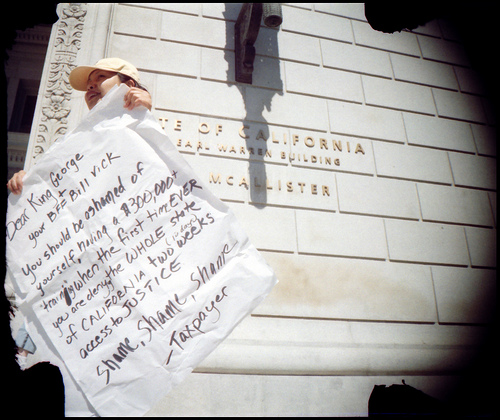 TE OF CALIFORNIA
EARL WARREN BUILDING
MCALLISTER
Dear King George
+
your BFF Bill Vick
You should be ashamed of
yourself, having a $300,000+
training when the first time EVER
you are deny the WHOLE state
of CALIFORNIA two weeks
access to JUSTICE
Shame, Shame, Shame
-Taxpayer